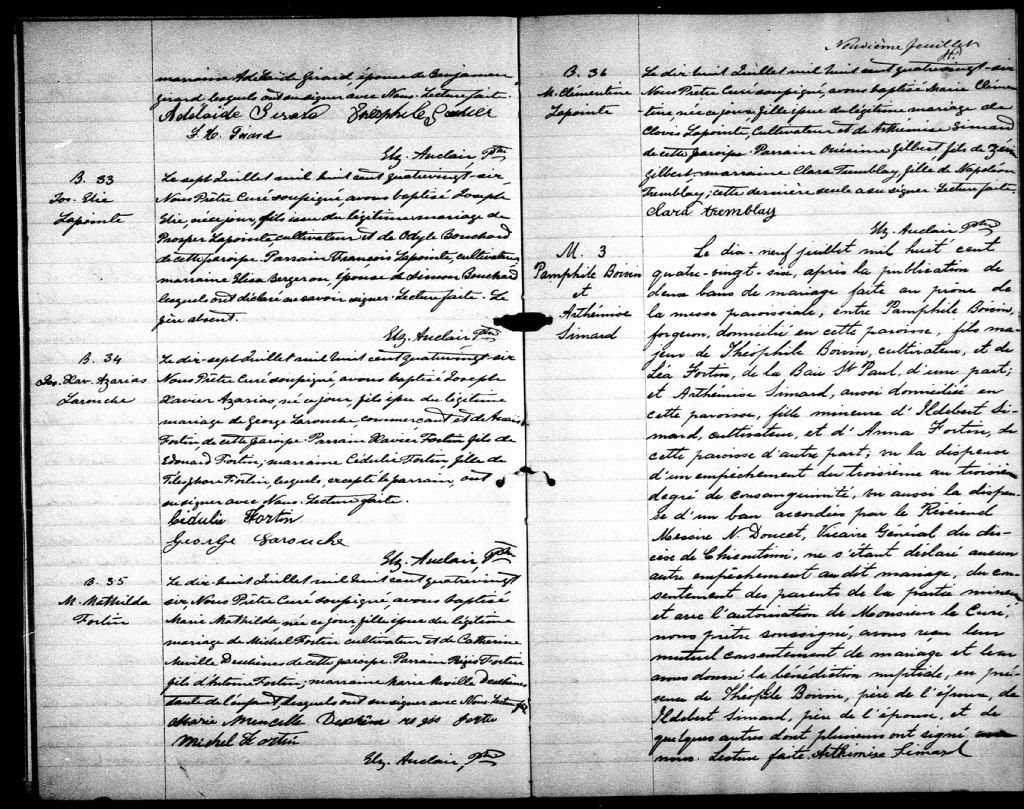 marraine Adélaïde Girard, épouse de Benjamin
Girard lesquels ont su signer avec Nous. Lecture faite.
Adélaïde Girard Théophile
Girard
Elz. Auclair, Ptre
B. 33
Jos. Elie
Lapointe
Le sept Juillet mil huit cent quatrevingt-six
Nous Prêtre Curé soussigné, avons baptisé Joseph
Elie, né ce jour, fils issu du légitime mariage de
Prosper Lapointe, cultivateur et de Odyle Bouchard
de cette paroisse. Parrain François Lapointe, cultivateur
marraine Elisa Bergeron, épouse de Simon Bouchard
lesquels ont déclaré ne savoir signer. Lecture faite. Le
père absent.
Elz. Auclair Ptre
B. 34
Jos. Xav. Azarias
Larouche
Le dix-sept Juillet mil huit cent quatrevingt-six
Nous Prêtre Curé soussigné, avons baptisé Joseph
Xavier Azarias, né ce jour, fils issu du légitime
mariage de George Larouche, commerçant et de
Fortin de cette paroisse. Parrain Xavier Fortin fils de
Edouard Fortin; marraine Cédulie Fortin, fille de
Télesphore Fortin, lesquels, excepté le parrain, ont
su signer avec Nous. Lecture faite.
Cédulie Fortin
George Larouche
Elz. Auclair, Ptre
B. 35
M. Mathilda
Fortin
Le dix-huit Juillet mil huit cent quatrevingt
six, Nous Prêtre Curé soussigné, avons baptisé
Marie Mathilda, née ce jour fille issue du légitime
mariage de Michel Fortin cultivateur et de Catherine
Méville Deschênes de cette paroisse. Parrain Régis Fortin
fils d'Antoine Fortin; marraine Marie Méville Deschênes,
tante de l'enfant, lesquels ont su signer avec Nous. Lecture fte
Marie Deschène regis Fortin
Michel Fortin
Elz. Auclair, Ptre
Neuvième feuillet
B. 36
M. Clémentine
Lapointe
Le dix huit Juillet mil huit cent quatrevingt-six
Nous Prêtre Curé soussigné, avons baptisé Marie Clémen-
tine, née ce jour, fille issue du légitime mariage de
Clovis Lapointe, Cultivateur et de Arthémise Simard
de cette paroisse. Parrain Onésime Gilbert, fils de
Gilbert; marraine Clara Tremblay, fille de Napoléon
Tremblay; cette dernière seule a su signer. Lecture faite.
Clara tremblay
Elz. Auclair Ptre
M. 3
Pamphile Boivin
et
Arthémise
Simard
Le dix-neuf juillet mil huit cent
quatre-vingt-six, après la publication de
deux bans de mariage faite au prône de
la messe paroissiale, entre Pamphile Boivin,
forgeron, domicilié en cette paroisse, fils ma-
jeur de Théophile Boivin, cultivateur, et de
Léa Fortin, de la Baie St Paul, d'une part;
et Arthémise Simard, aussi domiciliée en
cette paroisse, fille mineure d'Ildebert Si-
mard, cultivateur, et d'Anna Fortin, de
cette paroisse d'autre part; vu la dispense
d'un empêchement du troisième au troisième
degré de consanguinité, vu aussi la dispen-
se d'un ban accordées par le Révérend
Messire N. Doucet, Vicaire Général du dio-
cèse de Chicoutimi, ne s'étant déclaré aucun
autre empêchement au dit mariage, du con-
sentement des parents de la partie mineure
et avec l'autorisation de Monsieur le Curé;
nous prêtre soussigné, avons reçu leur
mutuel consentement de mariage et leur
avons donné la bénédiction nuptiale, en pré-
sence de Théophile Boivin, père de l'époux, de
Ildebert Simard, père de l'épouse, et de
quelques autres dont plusieurs ont signé avec
nous. Lecture faite. Arthémise Simard